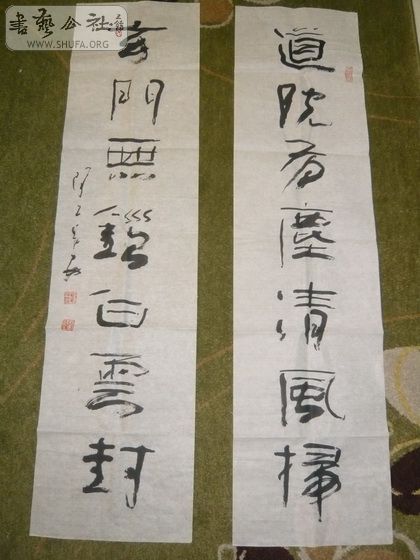 書藝公社
WWW.SHUFA.ORG
道院有塵清風掃
玄門無鎖白雲封